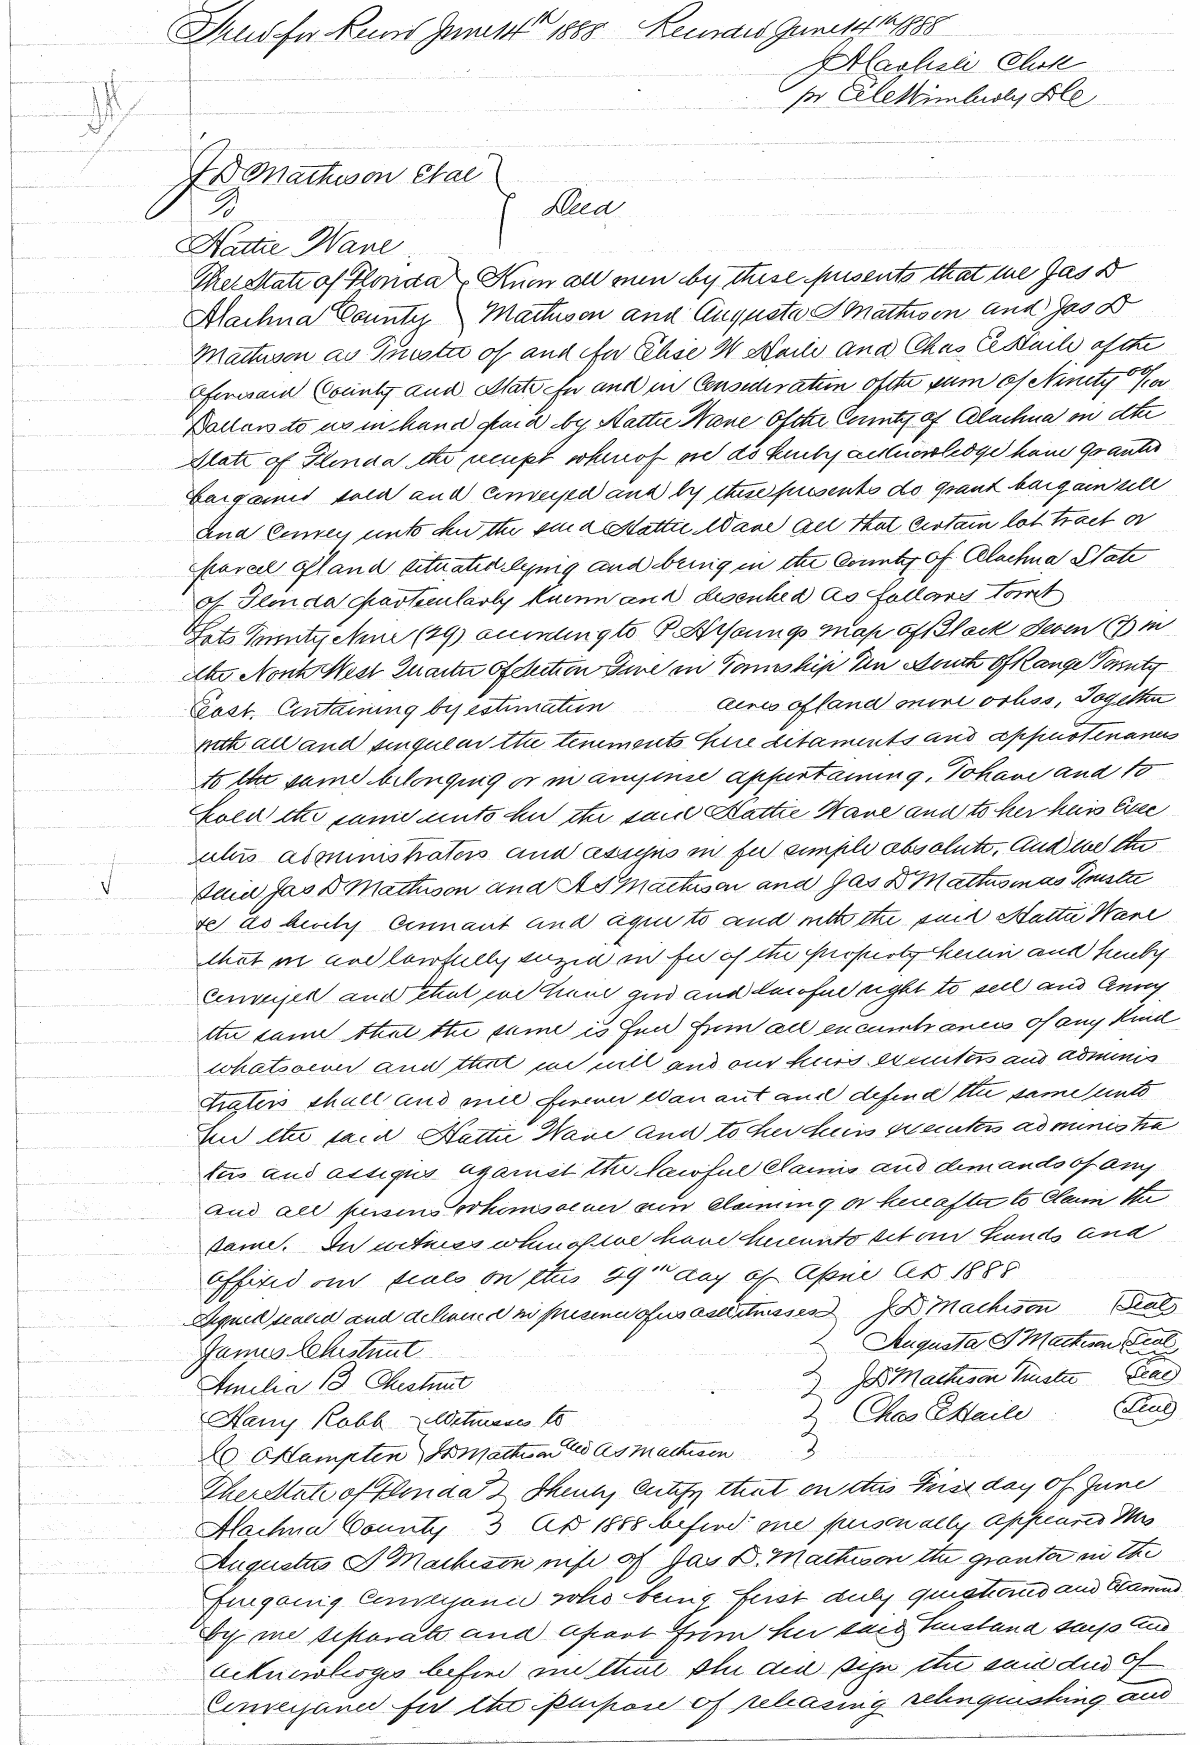 Filed for Record June 14th 1888 Recorded June 14th 1888
J A Carlisle Clerk
pr Wimberly DC
J D Matheson Et al
To
} Deed
Hattie Wane
The State of Florida } Know all men by these presents that we Jas D
Alachua County } Matheson and Augusta S Matheson and Jas D
Matheson as Trustee of and for Elise W Haile and Chas E Haile of the
aforesaid County and State for and in Consideration of the sum of Ninety 00/100
Dollars to us in hand paid by Hattie Wane of the County of Alachua in the
State of Florida the receipt whereof we do hereby acknowledge have granted
bargained sold and Conveyed and by these presents do grant bargain sell
and Convey unto her the said Hattie Wane all that Certain lot tract or
parcel of land situated lying and being in the County of Alachua State
of Florida particularly Known and described as follows towit
Lots Twenty Nine (29) according to P A Youngs map of Block Seven (7) in
the North West Quarter of Section Five in Township Ten South of Range Twenty
East. Containing by estimation acres of land more or less, Together
with all and singular the tenements hereditaments and appurtenances
to the same belonging or in anywise appertaining. To have and to
hold the same unto her the said Hattie Wane and to her heirs Exec
utors administrators and assigns in fee simple absolute. And we the
said Jas D Matheson and A S Matheson and Jas D Matheson as Trustee
&c do hereby Covenant and agree to and with the said Hattie Wane
that we are lawfully seized in fee of the property herein and hereby
Conveyed and that we have good and lawful right to sell and Convey
the same that the same is free from all encumbrances of any Kind
whatsoever and that we will and our heirs executors and adminis
trators shall and will forever Warrant and defend the same unto
her the said Hattie Wane and to her heirs executors administra
tors and assigns against the lawful Claims and demands of any
and all persons whomsoever now Claiming or hereafter to Claim the
same. In witness whereof we have hereunto set our hands and
affixed our seals on this 29th day of April AD 1888
Signed sealed and delivered in presence of us as witnesses } J D Matheson (Seal)
James Chestnut } Augusta S Matheson (Seal)
Amelia B Chestnut } J D Matheson Trustee (Seal)
Harry Robb } Witnesses to } Chas E Haile (Seal)
C O Hampton } J D Matheson and A S Matheson }
The State of Florida } I hereby Certify that on this First day of June
Alachua County } AD 1888 before me personally appeared Mrs
Augustus S Matheson wife of Jas D. Matheson the grantor in the
foregoing Conveyance who being first duly questioned and Examined
by me separate and apart from her said husband says and
acknowledges before me that she did sign the said deed of
Conveyance for the purpose of releasing relinquishing and